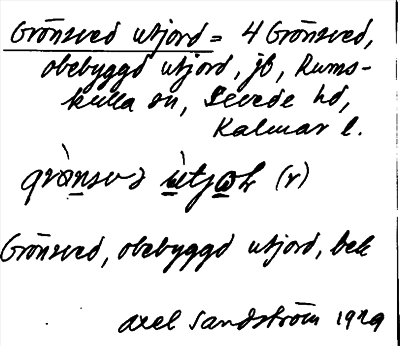 Grönsved utjord = 4 Grönsved,
obebyggd utjord, jb, Rums-
kulla sn, Sevede hd,
Kalmar l.
Grönsved, obebyggd utjord, bek
Axel Sandström 1929